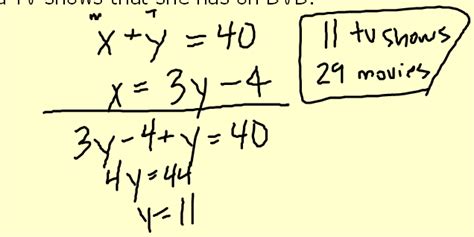 TV shows that she has on DVD.
m T
x + y = 40
x = 3y - 4
3y - 4 + y = 40
4y = 44
y = 11
11 tv shows
29 movies